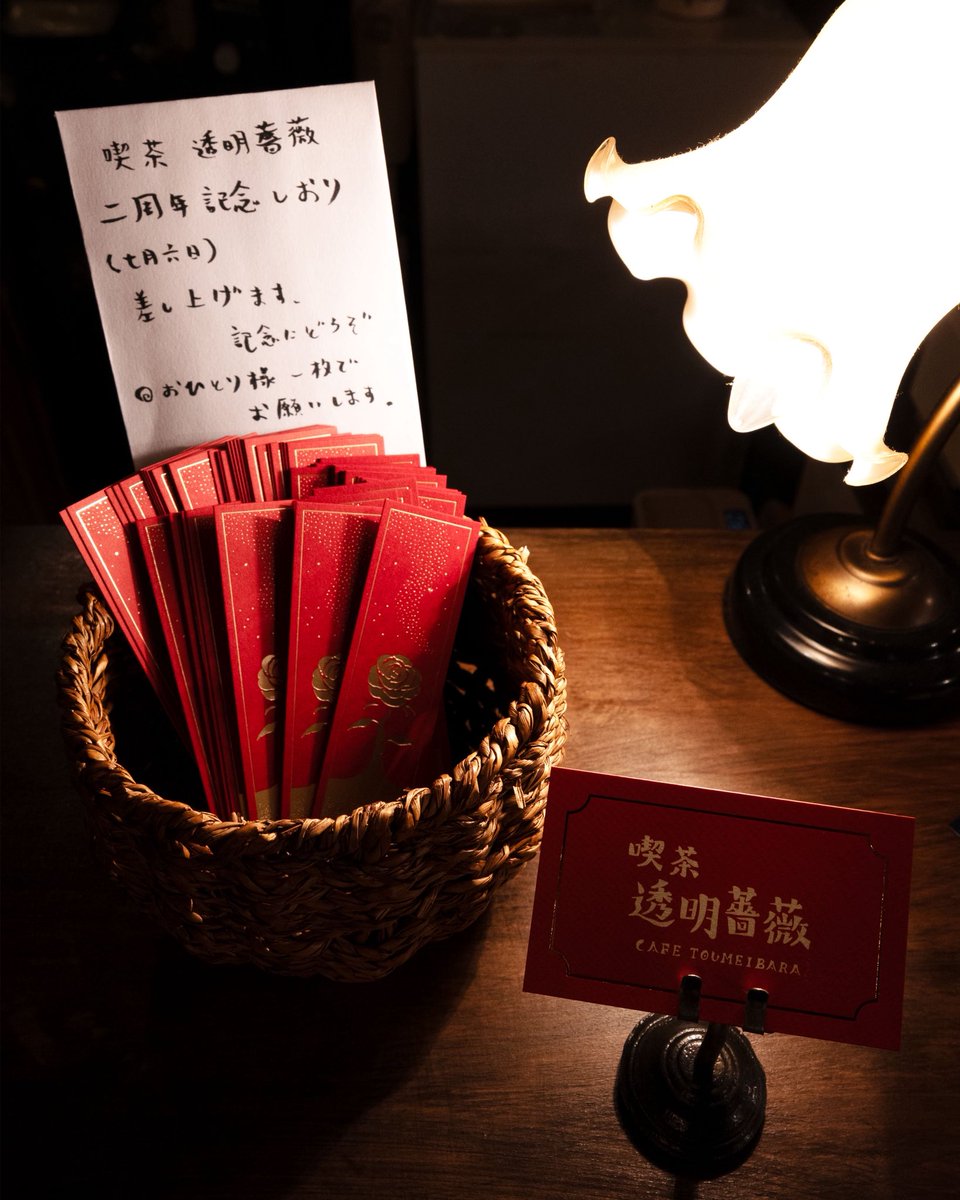 喫茶 透明薔薇
二周年記念しおり
(七月六日)
差し上げます、
記念にどうぞ
◎おひとり様一枚で
お願いします。
喫茶
透明薔薇
CAFE TOUMEIBARA